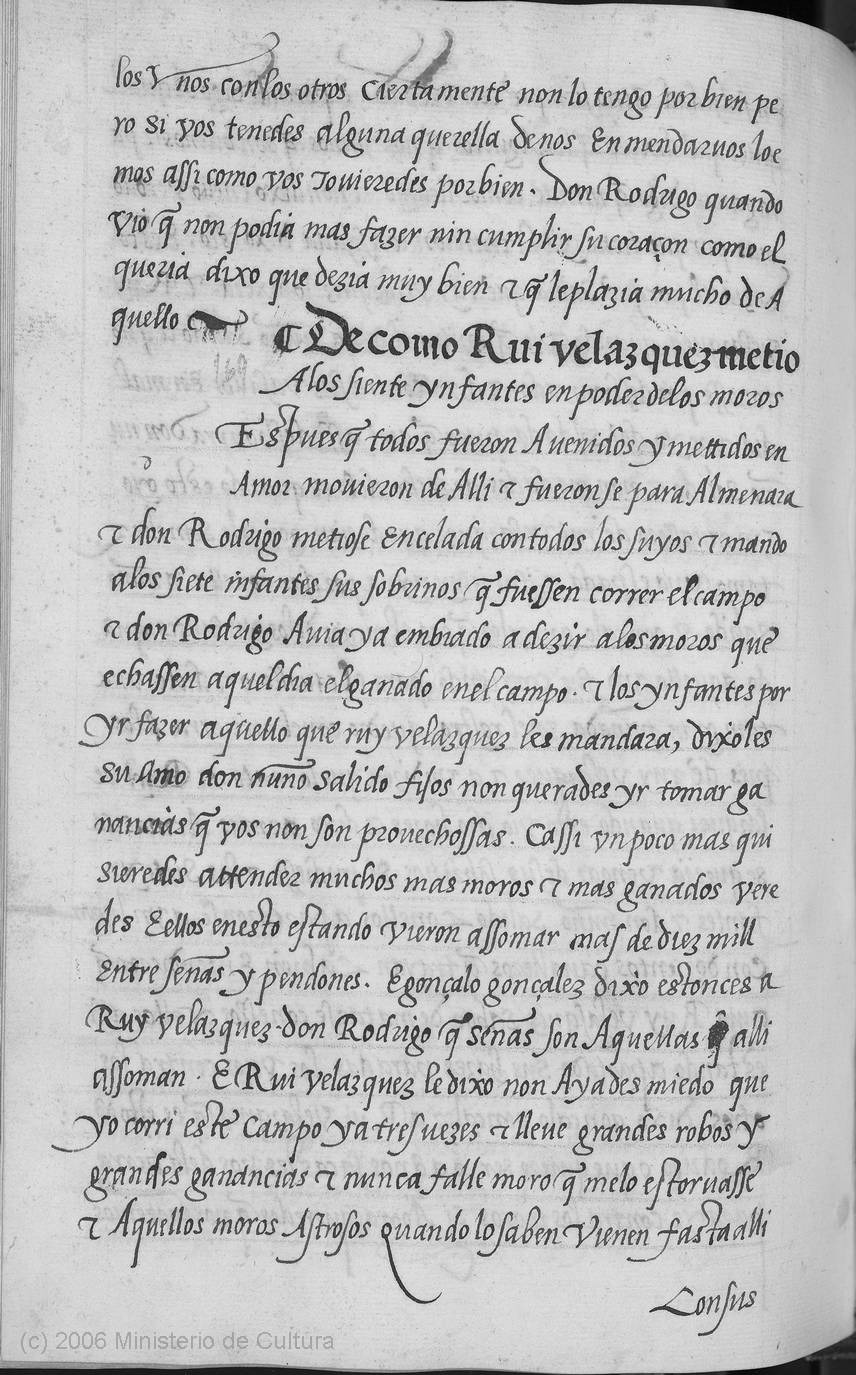 los Vnos con los otros Ciertamente non lo tengo por bien pe
ro si vos tenedes alguna querella de nos Enmendarvos loe
mos assi como vos tovieredes por bien. Don Rodrigo quando
vio q̃ non podia mas fazer nin cumplir su coraçon como el
queria dixo que dezia muy bien τ q̃ le plazia mucho de A
quello
¶ De como Rui velazquez metio
A los siente ynfantes en poder de los moros
Espues q̃ todos fueron Avenidos y mettidos en
Amor movieron de Alli τ fueronse para Almenara
τ don Rodrigo metiose Encelada con todos los suyos τ mando
alos siete infantes sus sobrinos q̃ fuessen correr el campo
τ don Rodrigo Avia ya embiado a dezir a los moros que
echassen aquel dia el ganado en el campo. τ los ynfantes por
yr fazer aquello que ruy velazquez les mandara, dixoles
su Amo don nuño salido fijos non querades yr tomar ga
nancias q̃ vos non son provechossas. Cassi vn poco mas qui
sieredes attender muchos mas moros τ mas ganados vere
des E ellos en esto estando vieron assomar mas de diez mill
Entre señas y pendones. E gonçalo gonçalez dixo estonces a
Ruy velazquez. don Rodrigo q̃ señas son Aquellas q̃ alli
assoman. E Rui velazquez le dixo non Ayades miedo que
yo corri este Campo ya tres vezes τ lleve grandes robos y
grandes ganancias τ nunca falle moro q̃ me lo estorvasse
τ Aquellos moros Astrosos quando lo saben Vienen fasta alli
Con sus
(c) 2006 Ministerio de Cultura